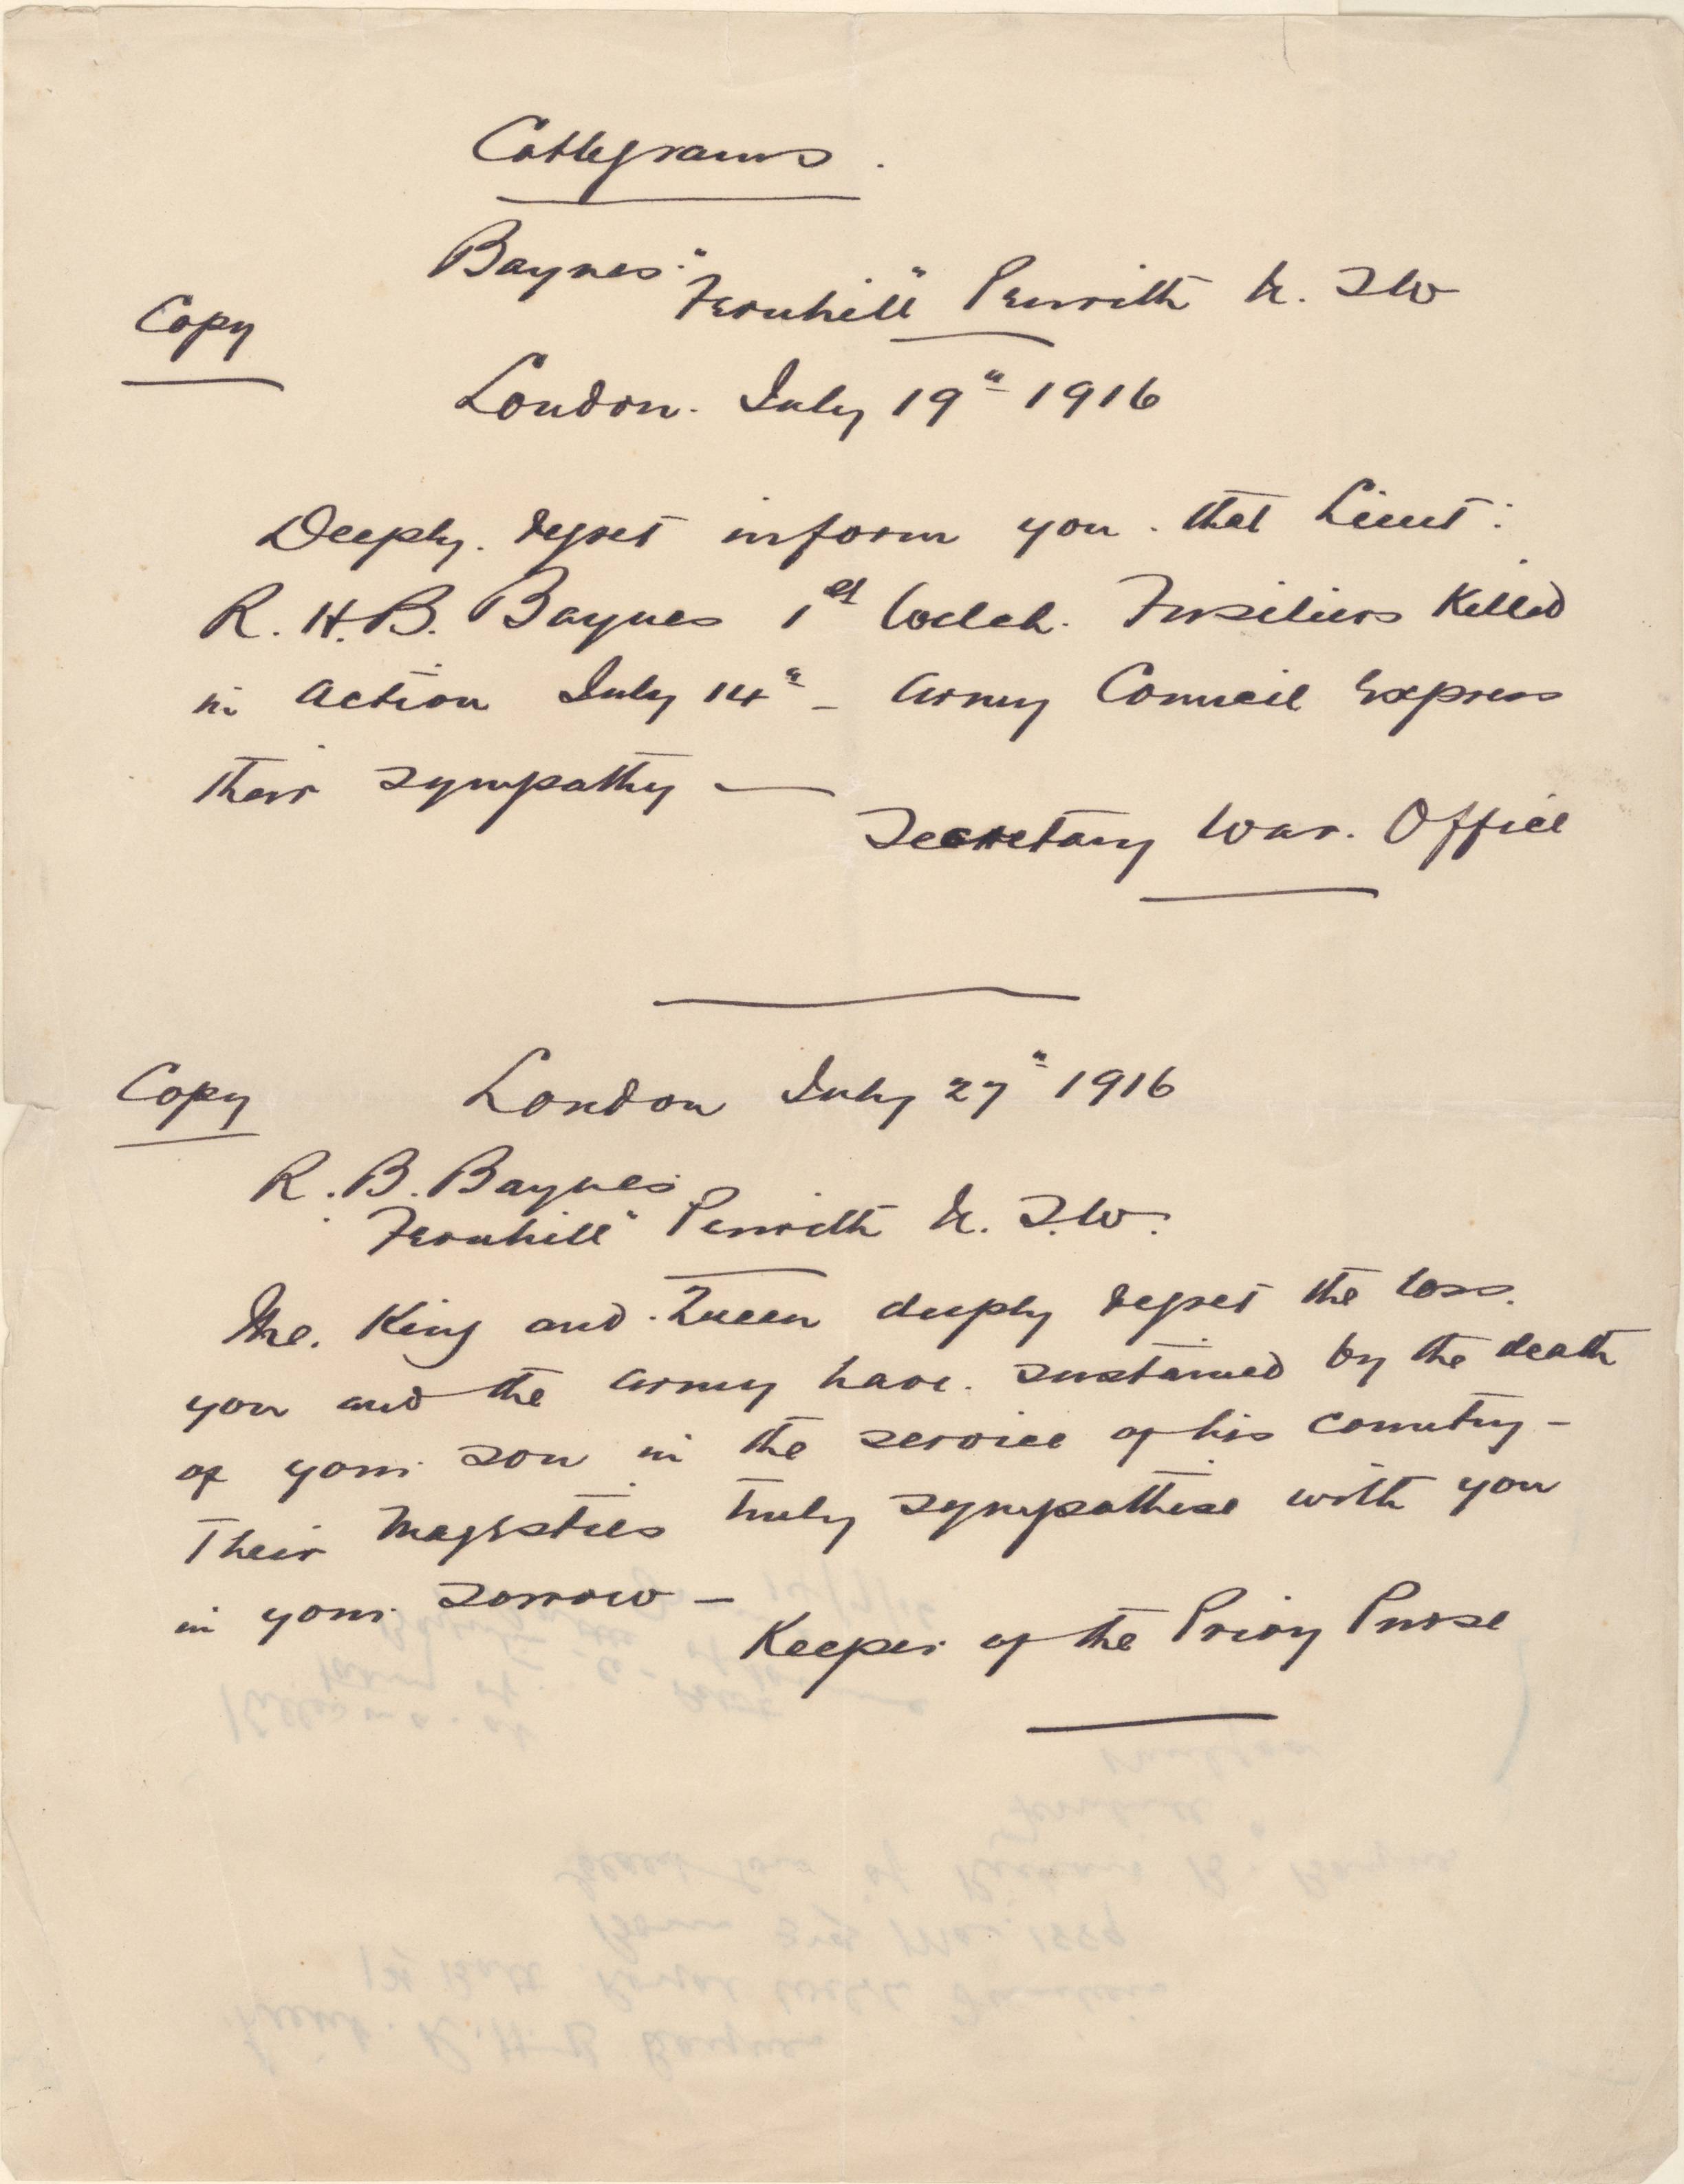 Cablegrams.
Baynes "Fernhill" Penrith N. S W
Copy
London. July 19" 1916
Deeply regret inform you that Lieut:
R. H. B. Baynes 1st Welch. Fusiliers Killed
in action July 14" – Army Council Express
their sympathy —
Secretary War. Office
Copy
London July 27" 1916
R. B. Baynes
"Fernhill" Penrith N. S. W.
The King and Queen deeply regret the loss.
you and the army have sustained by the death
of your son in the service of his country –
Their Majesties truly sympathise with you
in your sorrow –
Keeper of the Privy Purse